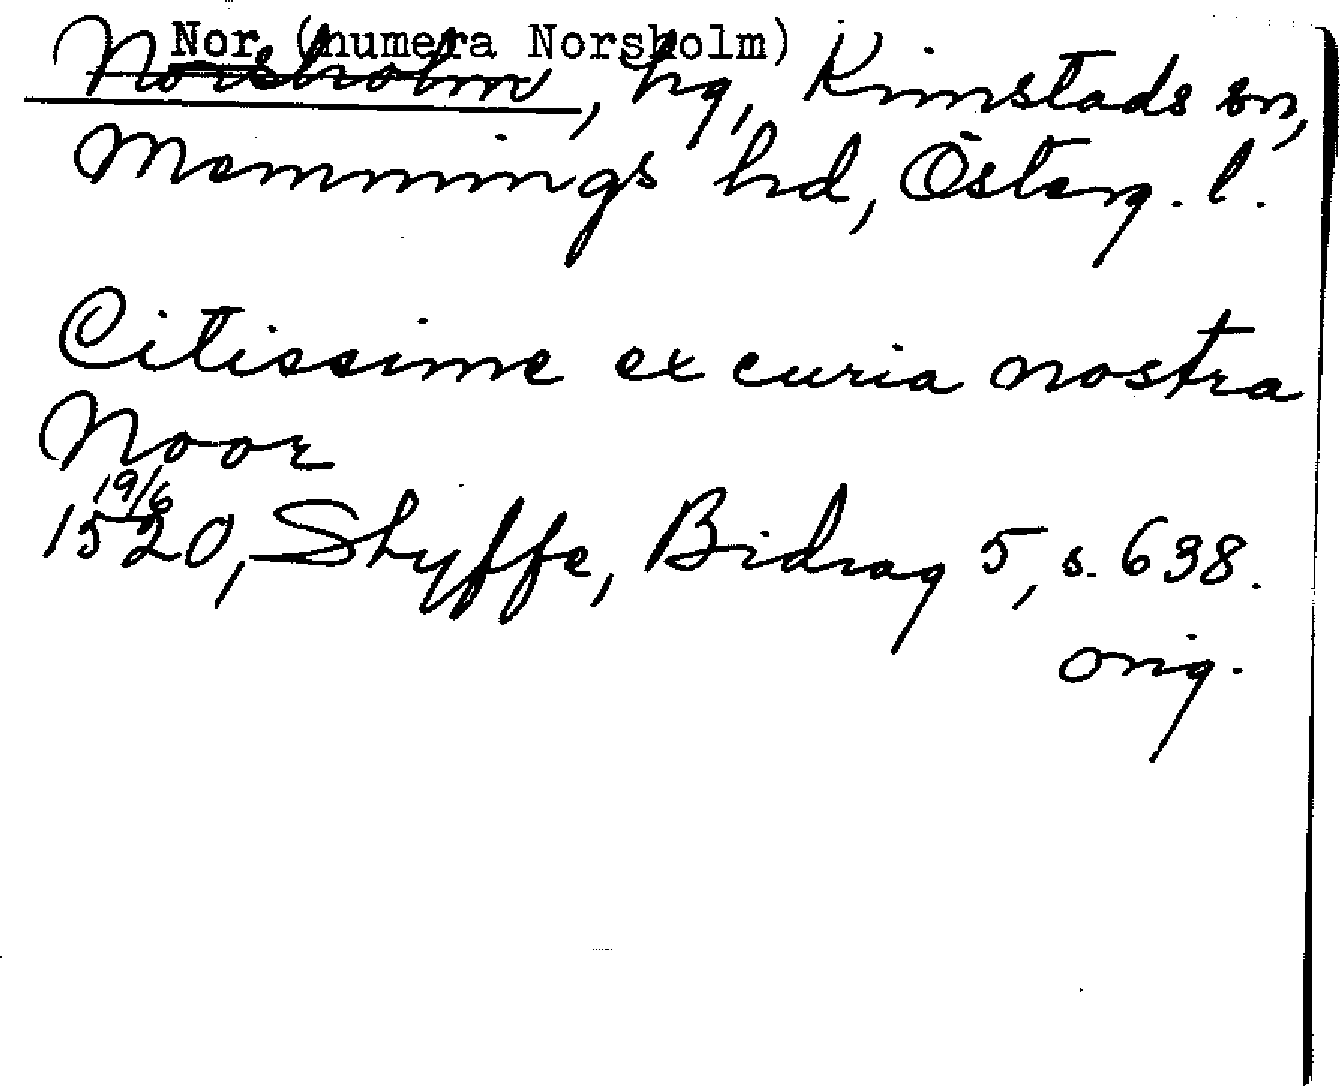 Nor (numera Norsholm)
Norsholm, hg, Kimstads sn,
Memmings hd, Österg. l.
Citissime ex curia nostra
Noor
19/6
1520, Styffe, Bidrag 5, s. 638.
orig.